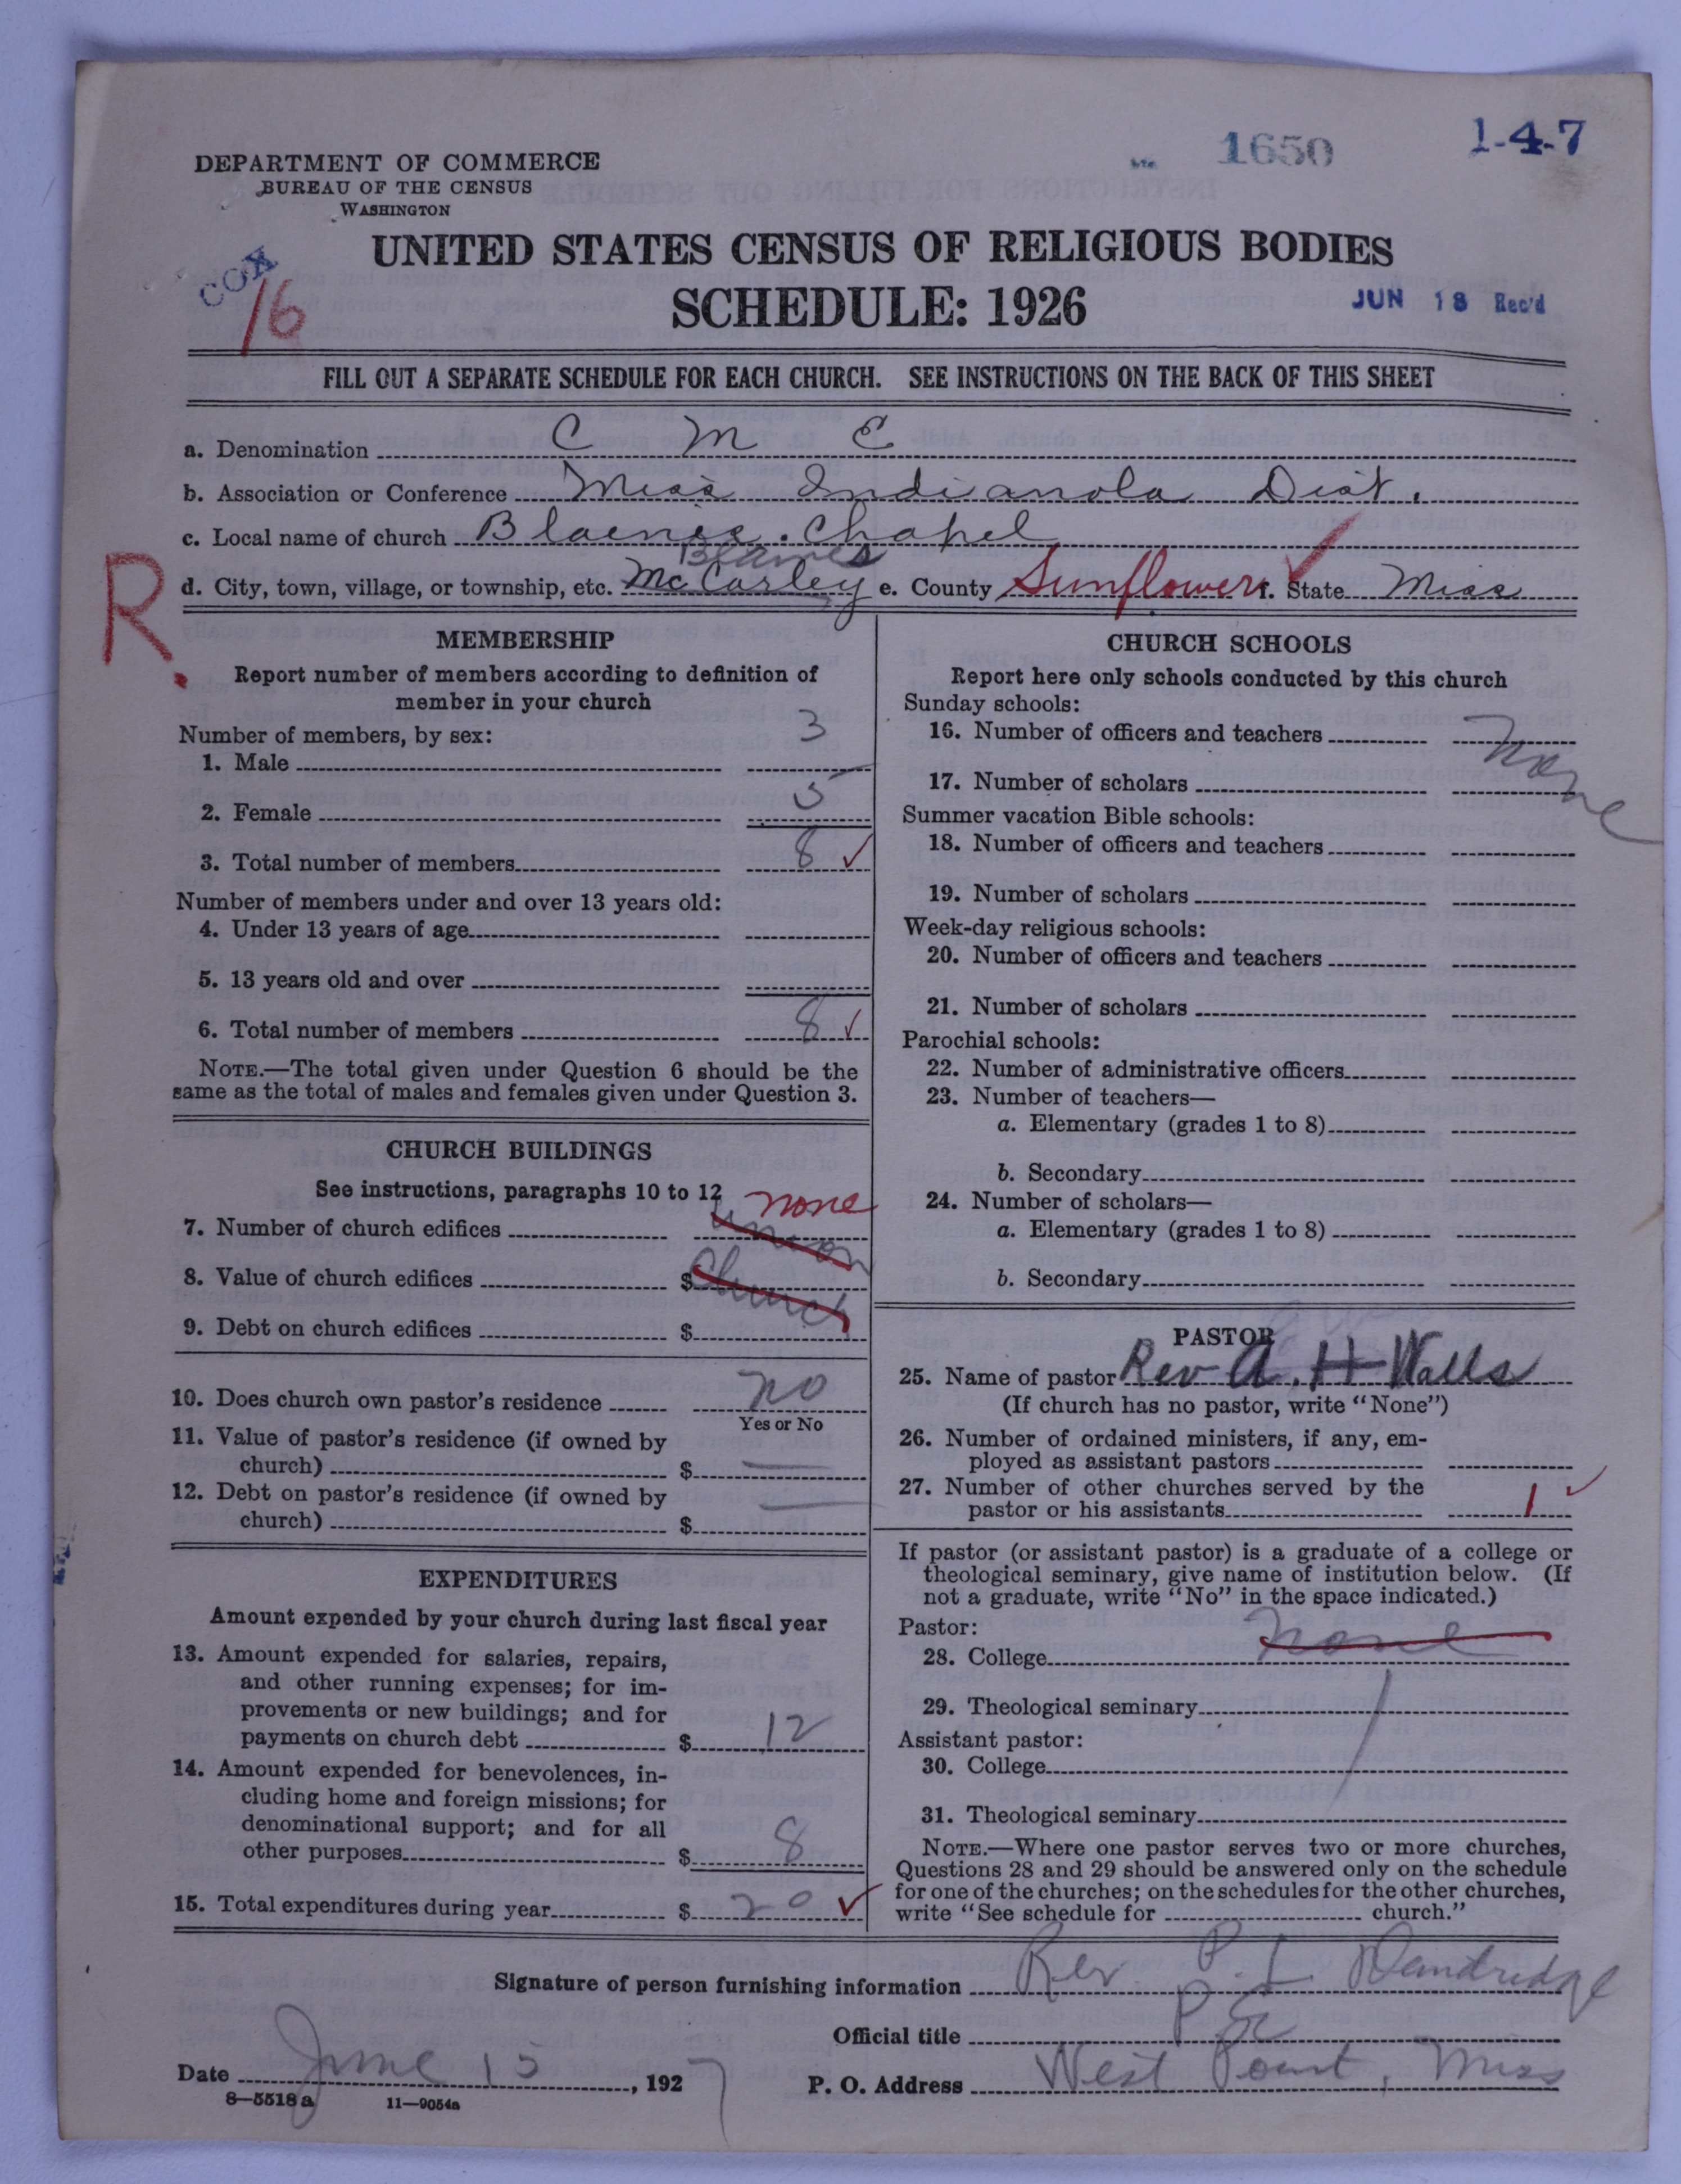 1650
1-4-7
DEPARTMENT OF COMMERCE
BUREAU OF THE CENSUS
WASHINGTON
COX
16
UNITED STATES CENSUS OF RELIGIOUS BODIES
SCHEDULE: 1926
JUN 18 Rec'd
FILL OUT A SEPARATE SCHEDULE FOR EACH CHURCH. SEE INSTRUCTIONS ON THE BACK OF THIS SHEET
a. Denomination C M E
b. Association or Conference Miss Indianola Dist.
c. Local name of church Blaenes. Chapel
Blaines
R.
d. City, town, village, or township, etc. McCarley e. County Sunflower f. State Miss
MEMBERSHIP
Report number of members according to definition of
member in your church
Number of members, by sex:
1. Male 3
2. Female 5
3. Total number of members 8 ✓
Number of members under and over 13 years old:
4. Under 13 years of age
5. 13 years old and over
6. Total number of members 8 ✓
NOTE.—The total given under Question 6 should be the
same as the total of males and females given under Question 3.
CHURCH BUILDINGS
See instructions, paragraphs 10 to 12
none
7. Number of church edifices union
8. Value of church edifices $ Church
9. Debt on church edifices $
10. Does church own pastor's residence no
Yes or No
11. Value of pastor's residence (if owned by
church) $ —
12. Debt on pastor's residence (if owned by
church) $ —
EXPENDITURES
Amount expended by your church during last fiscal year
13. Amount expended for salaries, repairs,
and other running expenses; for im-
provements or new buildings; and for
payments on church debt $ 12
14. Amount expended for benevolences, in-
cluding home and foreign missions; for
denominational support; and for all
other purposes $ 8
15. Total expenditures during year $ 20 ✓
CHURCH SCHOOLS
Report here only schools conducted by this church
Sunday schools:
16. Number of officers and teachers None
17. Number of scholars
Summer vacation Bible schools:
18. Number of officers and teachers
19. Number of scholars
Week-day religious schools:
20. Number of officers and teachers
21. Number of scholars
Parochial schools:
22. Number of administrative officers
23. Number of teachers—
a. Elementary (grades 1 to 8)
b. Secondary
24. Number of scholars—
a. Elementary (grades 1 to 8)
b. Secondary
PASTOR
25. Name of pastor Rev A. H Walls
(If church has no pastor, write "None")
26. Number of ordained ministers, if any, em-
ployed as assistant pastors
27. Number of other churches served by the
pastor or his assistants 1 ✓
If pastor (or assistant pastor) is a graduate of a college or
theological seminary, give name of institution below. (If
not a graduate, write "No" in the space indicated.)
Pastor:
28. College none
29. Theological seminary
Assistant pastor:
30. College
31. Theological seminary
NOTE.—Where one pastor serves two or more churches,
Questions 28 and 29 should be answered only on the schedule
for one of the churches; on the schedules for the other churches,
write "See schedule for church."
Signature of person furnishing information Rev P. L. Dandridge
Official title P E
Date June 15, 1927 P. O. Address West Point, Miss
8—5518 a 11—9054a